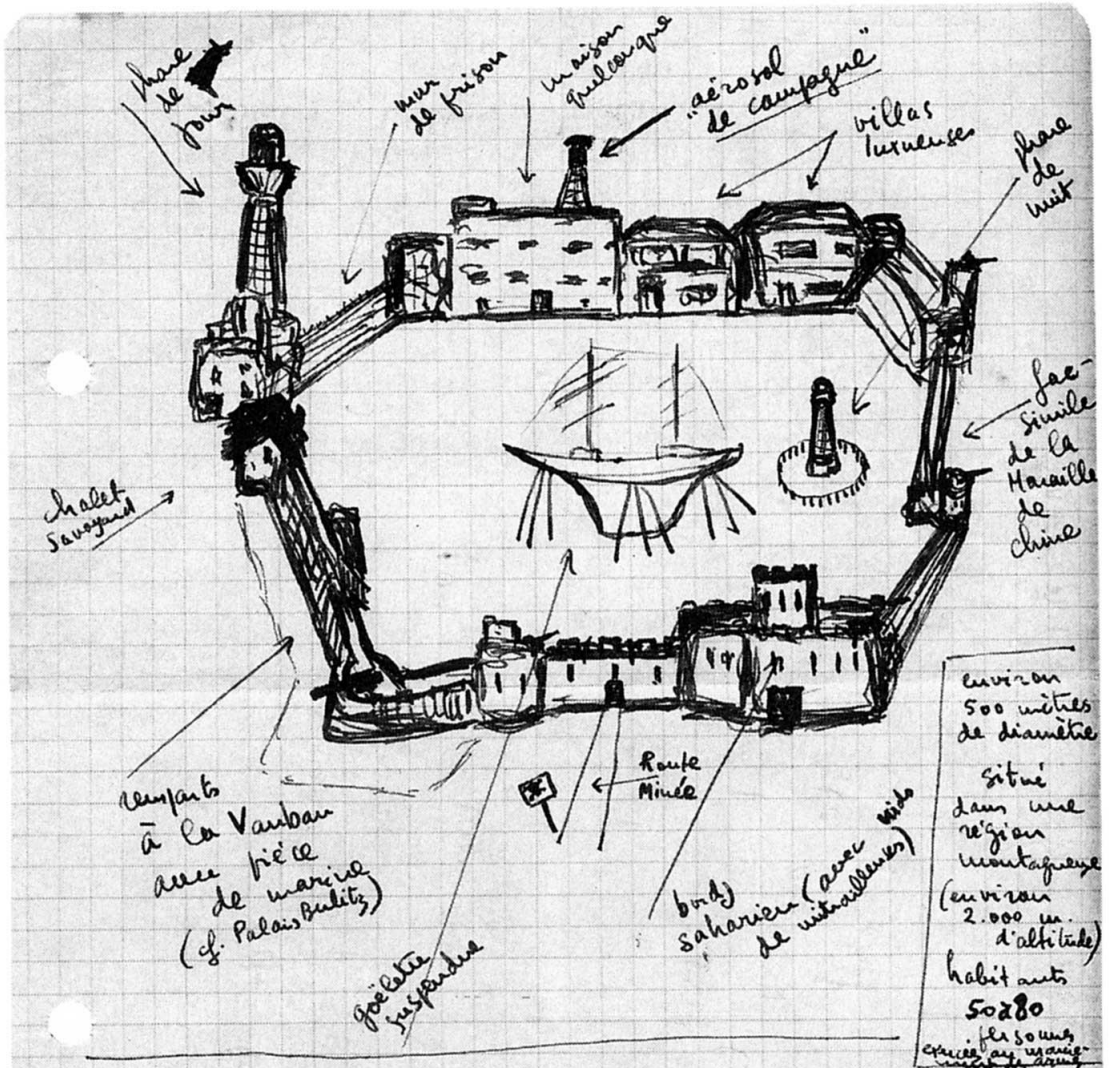 phare
de
jour
mur
de prison
maison
quelconque
"aérosol
de campagne"
villas
luxueuses
phare
de
nuit
fac-
simile
de la
Muraille
de
Chine
chalet
savoyard
remparts
à la Vauban
avec pièce
de marine
(cf. Palais
goëlette
suspendue
Route
Minée
bordj
saharien (avec nids
de mitrailleuses)
environ
500 mètres
de diamètre
situé
dans une
région
montagneuse
(environ
2.000 m.
d'altitude)
habitants
50 à 80
personnes